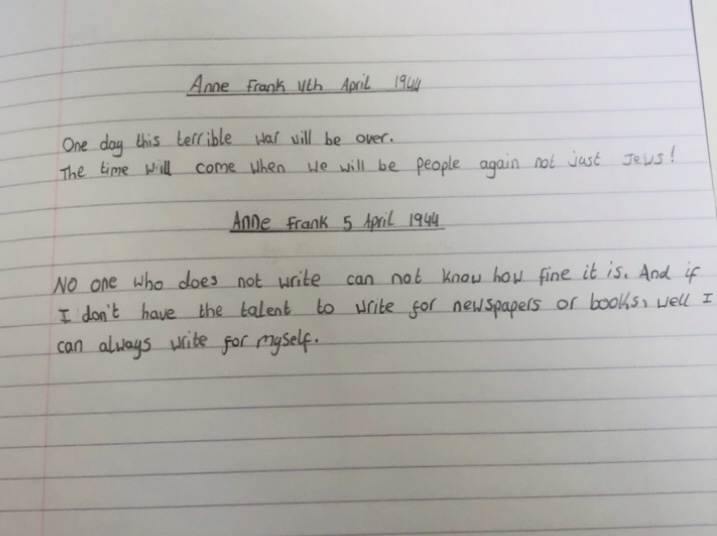 Anne Frank 4th April 1944
One day this terrible war will be over.
The time will come when we will be people again not just Jews!
Anne Frank 5 April 1944
No one who does not write can not know how fine it is. And if
I don't have the talent to write for newspapers or books, well I
can always write for myself.